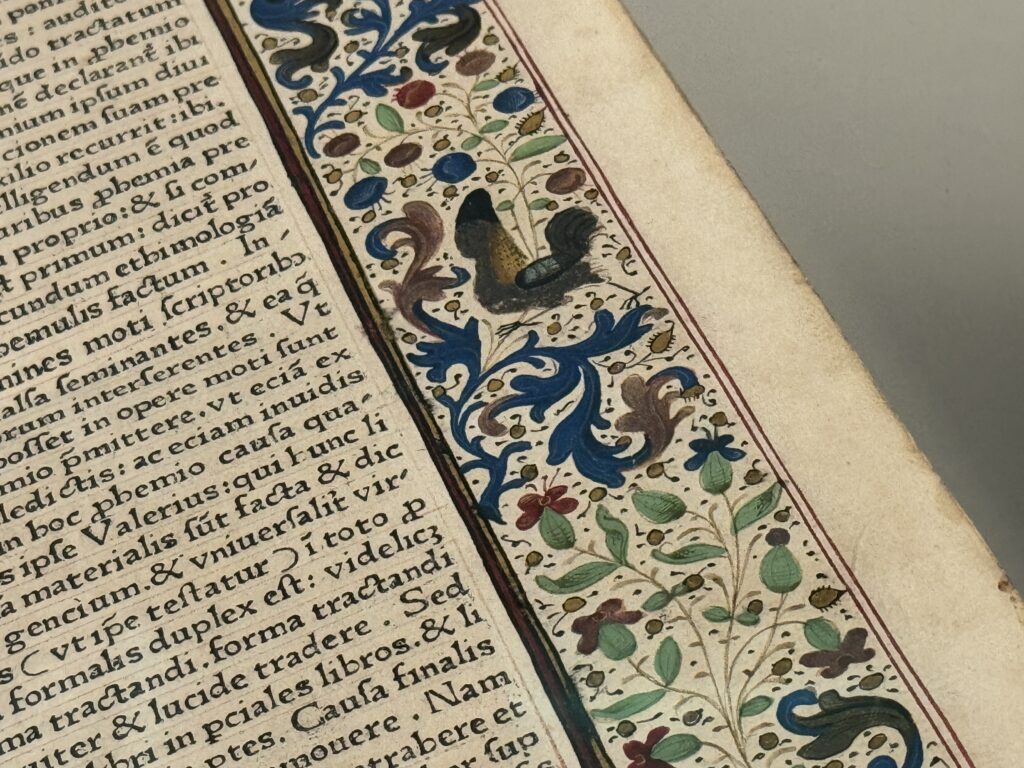 : audito
tractatum
que in ꝓhemio
declarant᷑ ibi
ipſum diui
cionem ſuam pre
recurrit : ibi.
lligendum ē quod
uribus ꝓhemia pre
proprio : & ſi com-
primum : dicit᷑ pro
cundum ethimologiā
hemulis factum . In-
mines moti ſcriptoribꝫ
alſa ſeminantes. & ea q̄
orum interſerentes . Vt
poſſet in opere moti ſunt
mio p̄mittere. vt eciā ex
ledictis : ac eciam inuidis
n hoc ꝓhemio cauſa qua.
s ipſe Valerius : qui hunc li
a materialis ſūt facta & dic
gencium. & vniuerſalit᷑ vir-
s ( vt ip̄e teſtatur ) ī toto ꝑ
formalis duplex eſt : videlicꝫ
ma tractandi. forma tractandi
uiter & lucide tradere . Sed
libri in ꝑciales libros. & li
ptes. Cauſa finalis
mouere . Nam
trahere et
ſup